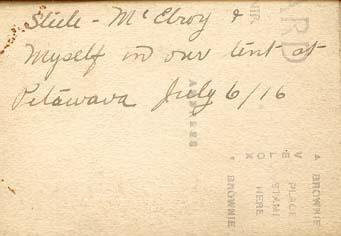 Steele - McElroy &
Myself in our tent at
Petawava July 6/16
CARD
ADDRESS
BROWNIE
VELOX
PLACE
STAMP
HERE
BROWNIE